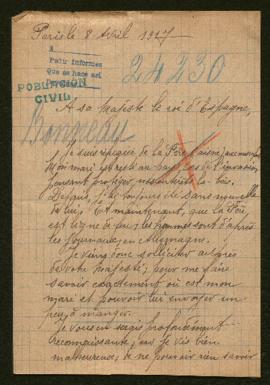 Paris le 8 Avril 1917
A
Pedir informes
Que se hace así
24230
POBLACIÓN
CIVIL
A sa Majesté le roi d'Espagne,
Bonneau
Je suis réfugiée de la Fère Aisne,
mon mari est resté au
pouvant protéger
Depuis, je suis toujours été sans nouvelle
de lui, Et maintenant, que la Fère
est les hommes sont d'après
les journaux, en Allemagne.
Je viens donc solliciter auprès
de votre Majesté, pour me faire
savoir exactement où est mon
mari et pouvoir lui envoyer un
peu à manger.
Je vous en serais profondément
reconnaissante, car je suis bien
malheureuse, de ne pouvoir rien savoir